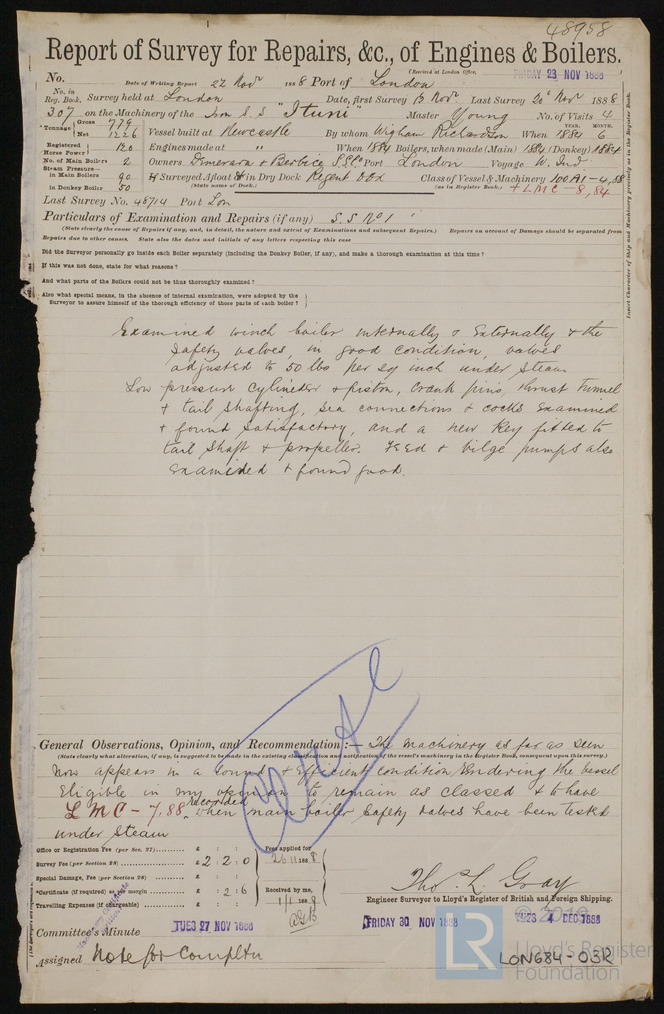 48958
Report of Survey for Repairs, &c., of Engines & Boilers.
(Received at London Office, FRIDAY 23 NOV 1888
No. Date of Writing Report 22 Novr 1888 Port of London
No. in Reg. Book. Survey held at London Date, first Survey Novr Last Survey 20 Novr 1888
307 on the Machinery of the Iron S.S "Ituni" Master Young No. of Visits 4
YEAR. MONTH.
Tonnage Gross 779 Net 1226 Vessel built at Newcastle By whom Wigham Richardson When 1884 6
Registered Horse Power 120 Engines made at " When 1884 Boilers, when made (Main) 1884 (Donkey) 1884
No. of Main Boilers 2 Owners Demerara & Berbice S.S.Co Port London Voyage W. Ind
Steam Pressure— in Main Boilers 90 If Surveyed Afloat & in Dry Dock Regent Dock Class of Vessel & Machinery 100A1-4,88
in Donkey Boiler 50 (State name of Dock.) (as in Register Book.) +LMC-8,84
Last Survey No. 46714 Port Lon
Particulars of Examination and Repairs (if any) S.S No 1
(State clearly the cause of Repairs if any, and, in detail, the nature and extent of Examinations and subsequent Repairs.) Repairs on account of Damage should be separated from
Repairs due to other causes. State also the dates and initials of any letters respecting this case
Did the Surveyor personally go inside each Boiler separately (including the Donkey Boiler, if any), and make a thorough examination at this time?
If this was not done, state for what reasons?
And what parts of the Boilers could not be thus thoroughly examined?
Also what special means, in the absence of internal examination, were adopted by the
Surveyor to assure himself of the thorough efficiency of those parts of each boiler?
Examined winch boiler internally & Externally & the
safety valves, in good condition, valves
adjusted to 50 lbs per sq inch under steam
Low pressure cylinder & piston, crank pins, thrust tunnel
& tail shafting, sea connections & cocks Examined
& found satisfactory, and a new key fitted to
tail shaft & propeller. Feed & bilge pumps also
Examined & found good.
Insert Character of Ship and Machinery precisely as in the Register Book.
General Observations, Opinion, and Recommendation:— The machinery as far as seen
(State clearly what alteration, if any, is suggested to be made in the existing classification and notification of the vessel's machinery in the Register Book, consequent upon this survey.)
Now appears in a sound & Efficient condition Rendering the vessel
Eligible in my opinion to remain as classed & to have
LMC - 7,88 recorded when main boiler safety valves have been tested
under steam
Office or Registration Fee (per Sec. 27) £ : : Fees applied for
Survey Fee (per Section 28) £ 2 : 2 : 0 26/11 1888
Special Damage, Fee (per Section 28) £ : :
*Certificate (if required) as per margin : 2 : 6 Received by me,
Travelling Expenses (if chargeable) £ : : 1/1 1889
Thos. L Gray
Engineer Surveyor to Lloyd's Register of British and Foreign Shipping.
Committee's Minute TUES 27 NOV 1888 FRIDAY 30 NOV 1888 TUES 4 DEC 1888
Assigned Note for Compltn
© 2019
LR
Lloyd's Register
Foundation
LON684-03R